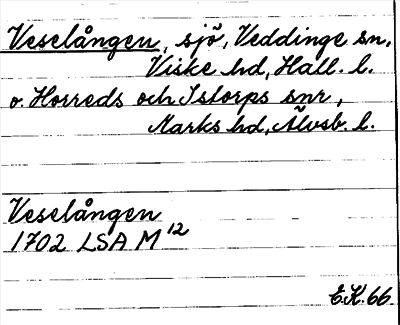 Veselången, sjö, Veddinge sn,
Viske hd, Hall. l.
o. Horreds och Istorps snr,
Marks hd, Älvsb. l.
Veselången
1702 LSA M 12
E.K. 66.